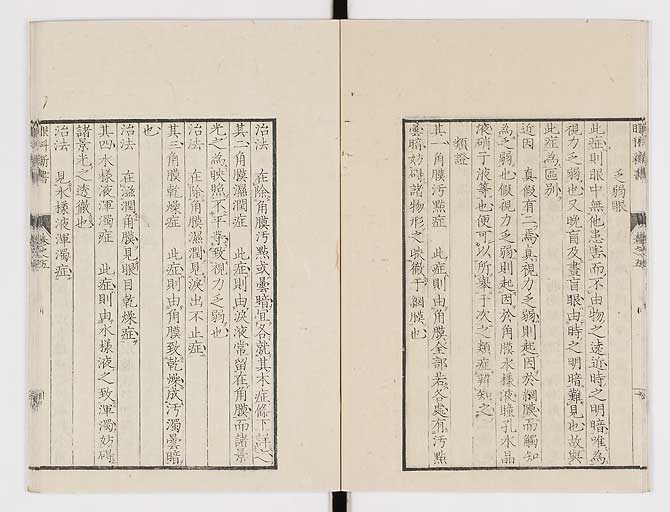 乏弱眼
此症則眼中無他患害而不由物之遠近時之明暗唯為
視力乏弱也又晚盲及晝盲眼由時之明暗難見也故與
此症為區別
近因　真假有二焉真視力乏弱則起因於網膜而觸知
為乏弱也假視力乏弱則起因於角膜水樣液瞳孔水晶
液硝子液等也便可以所舉于次之類症辨知之
類證
其一角膜汚點症　此症則由角膜全部若各處有汚點
曇暗妨碍諸物形之映徹于網膜也
治法　在除角膜汚點或曇暗宜各就其本症條下詳之
其二角膜濕潤症　此症則由淚液常留在角膜而諸景
光之為映照不平等致視力乏弱也
治法　在除角膜濕潤見淚出不止症
其三角膜乾燥症　此症則由角膜致乾燥成汚濁曇暗
也
治法　在滋潤角膜見眼目乾燥症
其四水樣液渾濁症　此症則由水樣液之致渾濁妨碍
諸景光之透徹也
治法　見水樣液渾濁症
眼科新書
卷之五